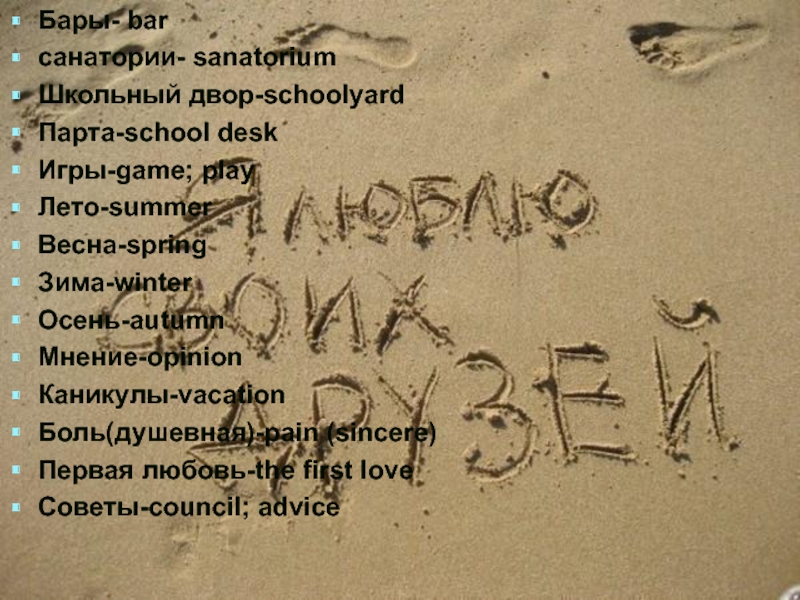 Бары- bar
санатории- sanatorium
Школьный двор-schoolyard
Парта-school desk
Игры-game; play
Лето-summer
Весна-spring
Зима-winter
Осень-autumn
Мнение-opinion
Каникулы-vacation
Боль(душевная)-pain (sincere)
Первая любовь-the first love
Советы-council; advice
Я люблю
своих
ДРУЗЕЙ